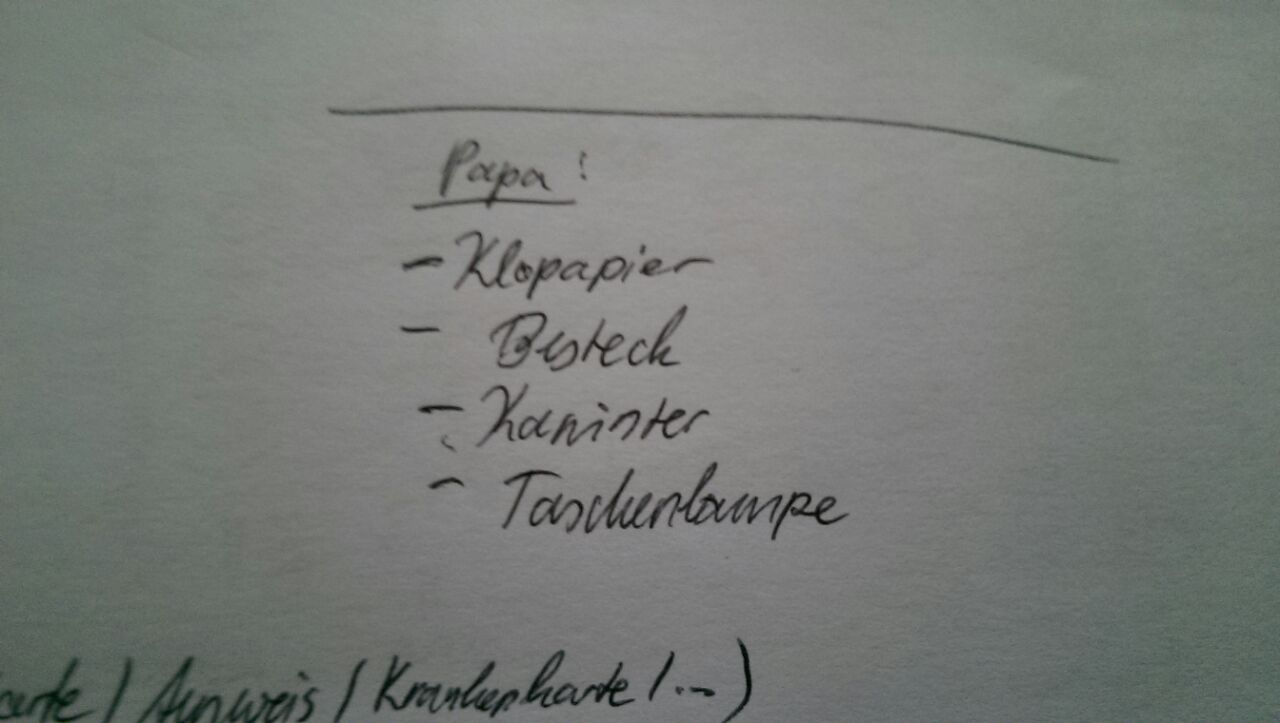 Papa:
- Klopapier
- Besteck
- Kanister
- Taschenlampe
karte / Ausweis / Krankenkarte / ...)